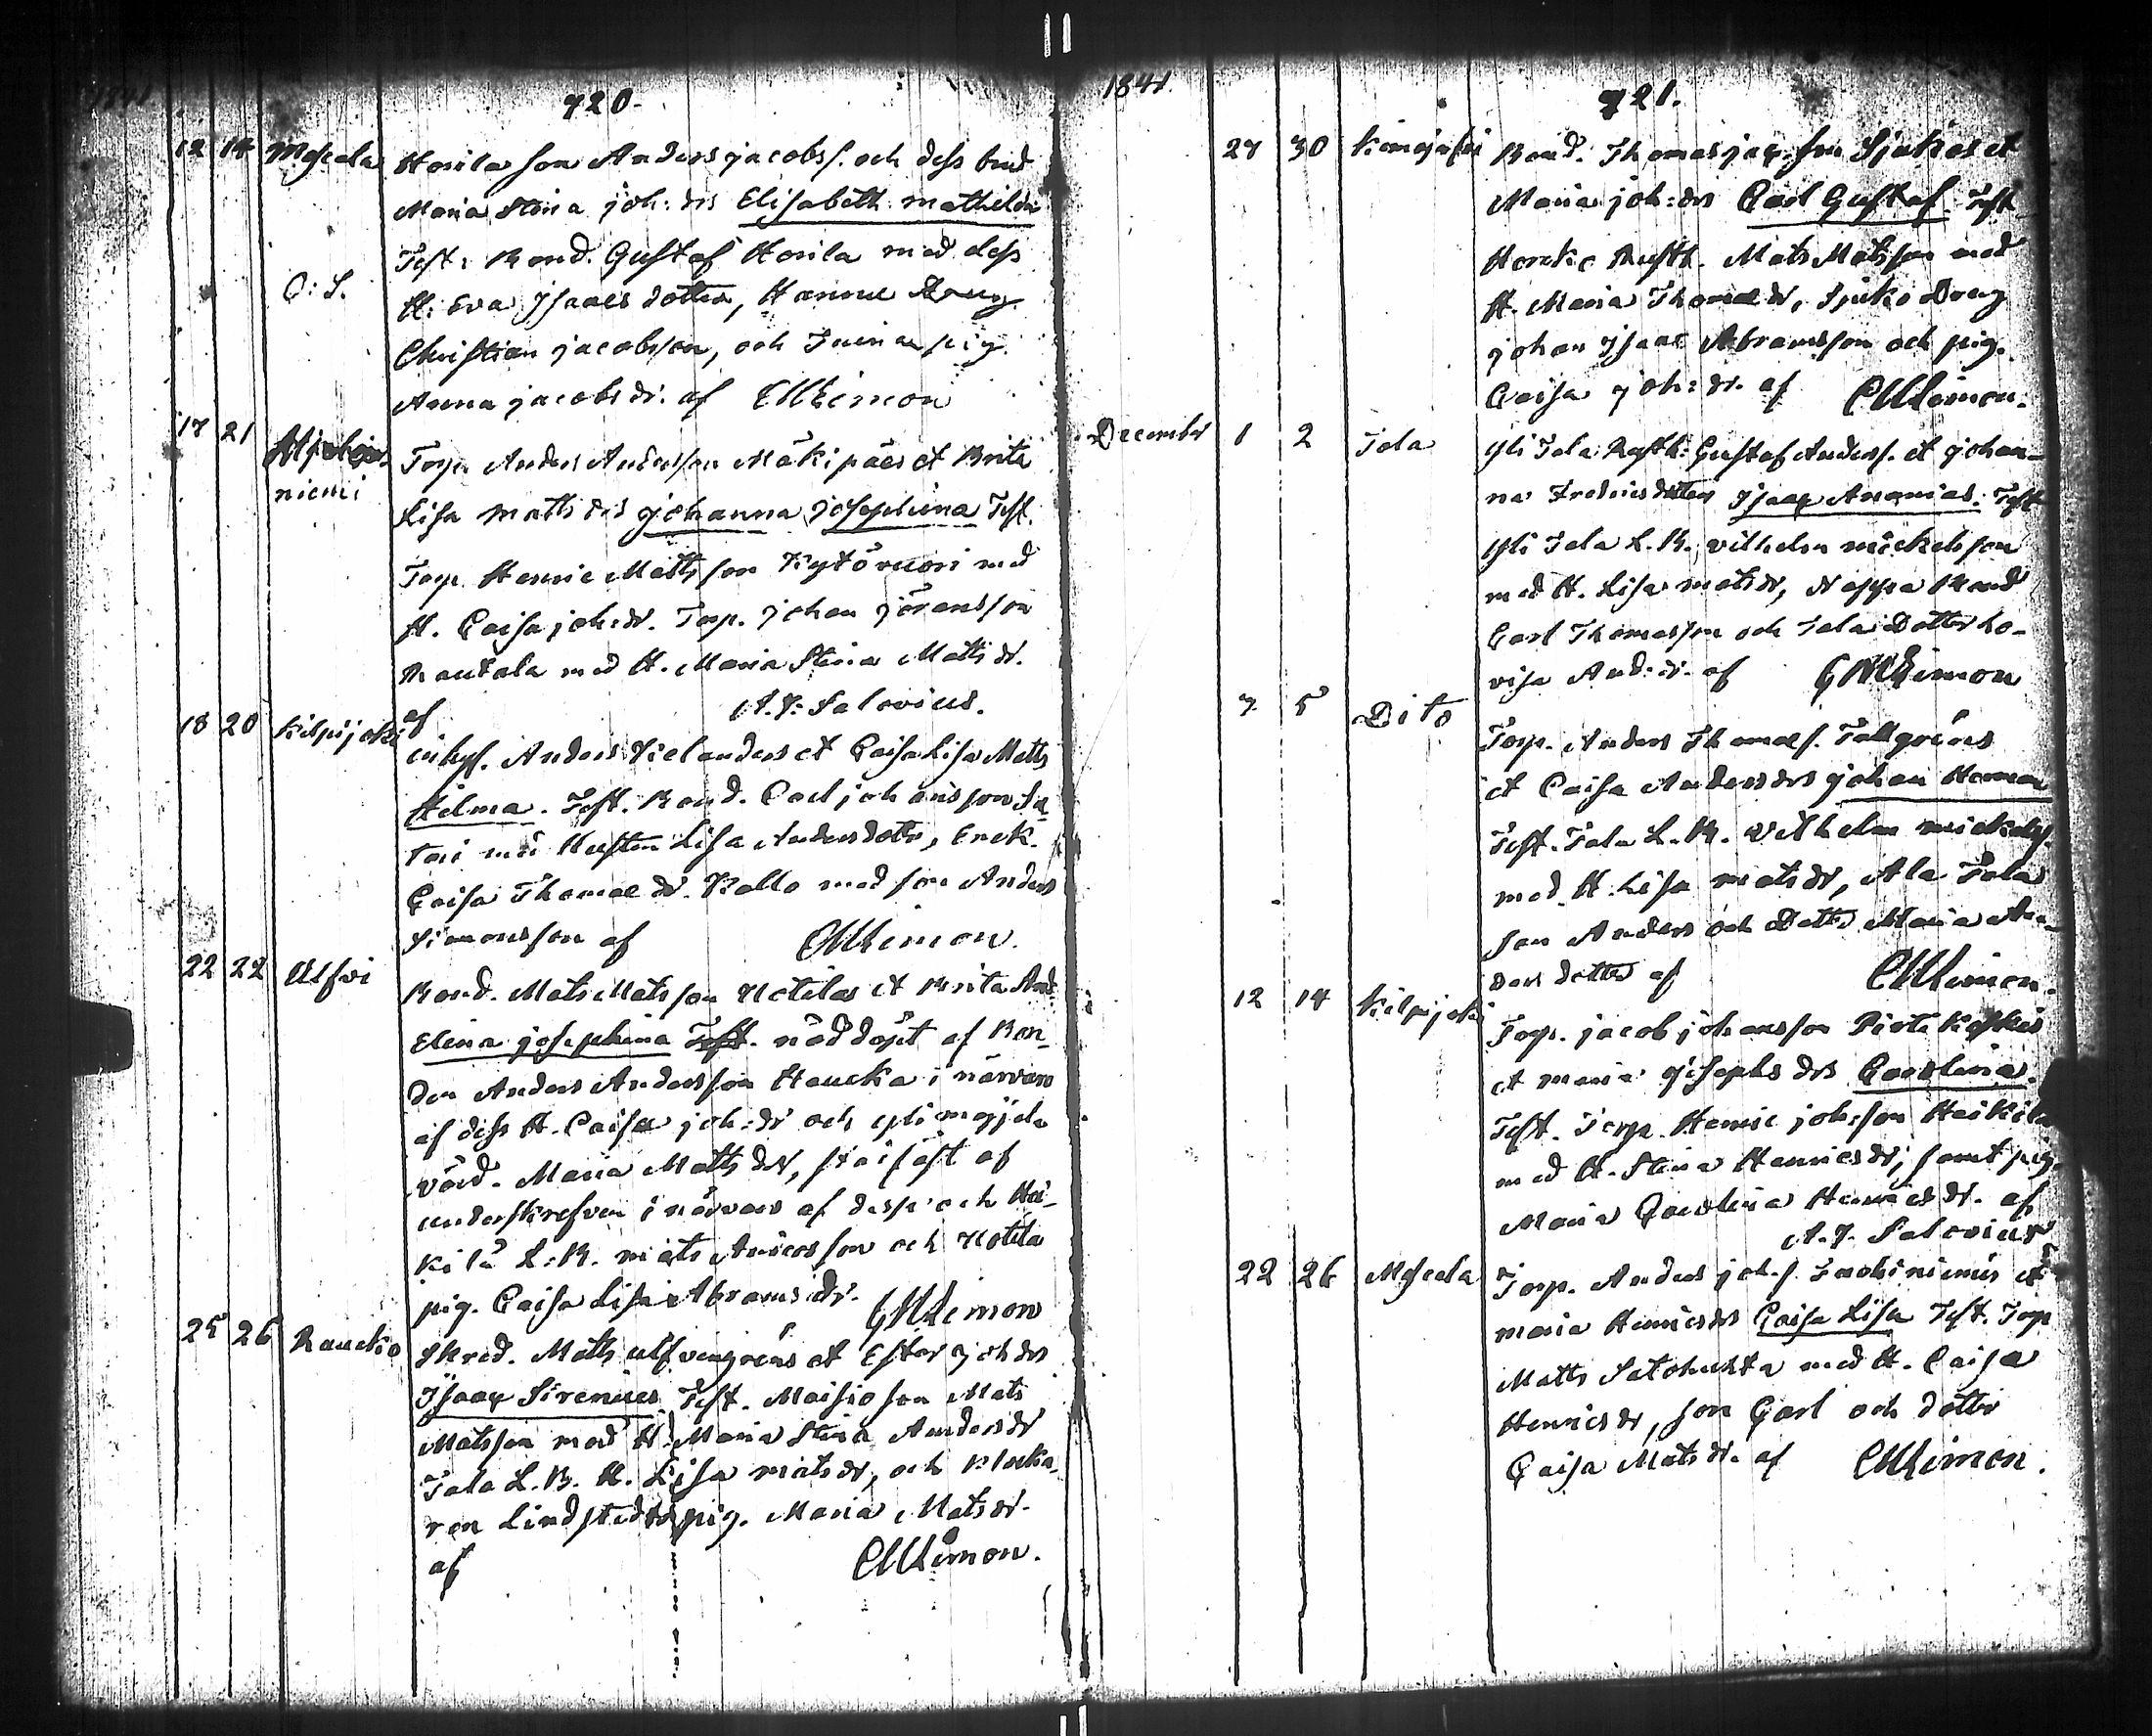 1841
720.
12 14 Moseela Honila son Anders jacobs. och dess bud
Maria Stina joh: drs Elisabeth mathilda
Test: Bond. Gustaf Honila med dess
O: S. H. Eva Jsaacs dotter, Hannu Dreng
Christian jacobsson, och pig.
Anna jacobs dr. af CMLimon
17 21 Torp. Anders Andersson Mäkipäes et Brita
niemi Lisa Matts drs johanna josephina Test.
Torp. Henric Mattsson Kytövuori med
H. Caisa joh: dr. Torp. johan jöransson
Rautala med H. Maria Stina Matts dr.
af A. J. Salovius.
18 20 Kilpijoki inhys. Anders Kielanders et Caisa Lisa Matts
Hilma. Test. Bond. Carl johansson Sa-
tari med Hustru Lisa Andersdotr, Enck.
Caisa Thomae dr. Kallo med son Anders
Simonsson af CMLimon.
22 22 Ulfvi Bond. Mats Matsson Uotilas et Brita And.
Elina josephina Test. nöddöpt af Bon-
den Anders Andersson Haucka i närvaro
af dess H. Caisa joh: dr och
värd. Maria Matts dr, af
underskrefven i närvaro af dess och Hei-
kilä L: B. Mats och Uotila
pig. Caisa Lisa Abrams dr. CMLimon
25 26 Raucko Skred. Matts ulfvengréns et Ester joh drs
Jsaac Sirenius Test. Maisio son Mats
Matsson med H. Maria Stina Anders dr
Tala L. B. H. Lisa mats dr, och klocka-
ren Lindstedts pig. Maria Mats dr.
af CMLimon.
1841
721.
27 30 Bond. Thomas jac. son Sjukos et
Maria joh: drs Carl Gustaf Test
Rusth. Mats Matsson med
H. Maria Thomae dr, Sjuko Dreng
johan Jsaac Abramsson och pig.
Caisa joh: dr. af CMLimon.
December 1 2 Tala Yli Tala Rusth: Gustaf Anders. et johan-
na Fredricsdotters Jsaac Ananias. Test
Yli Tala L. B. Vilhelm mickelsson
med H. Lisa mats dr, Nappa Bond
Carl Thomasson och Tala Dotter Lo-
visa And: dr. af CMLimon
3 5 Dito Torp. Anders Thomas. Tallgréns
et Caisa Anders drs johan Herman
Test. Tala L. B. Vilhelm mickels.
med H. Lisa mats dr, Ala Tala
son Anders och Dottr Maria An-
ders dotter af CMLimon.
12 14 Kilpijoki Torp. jacob johansson Pirtikoskis
et maria josephs drs Carolina.
Test. Torp. Henric joh: son Heikilä
med H. Stina Henrics dr, samt pig.
Maria Carolina Henrics dr. af
A. J. Salovius
22 26 Moseela Torp. Anders joh. s. et
maria Henrics drs Caisa Lisa Test. Torp
Matts Satohuhta med H. Caisa
Henrics dr, son Carl och dotter
Caisa Mats dr. af CMLimon.